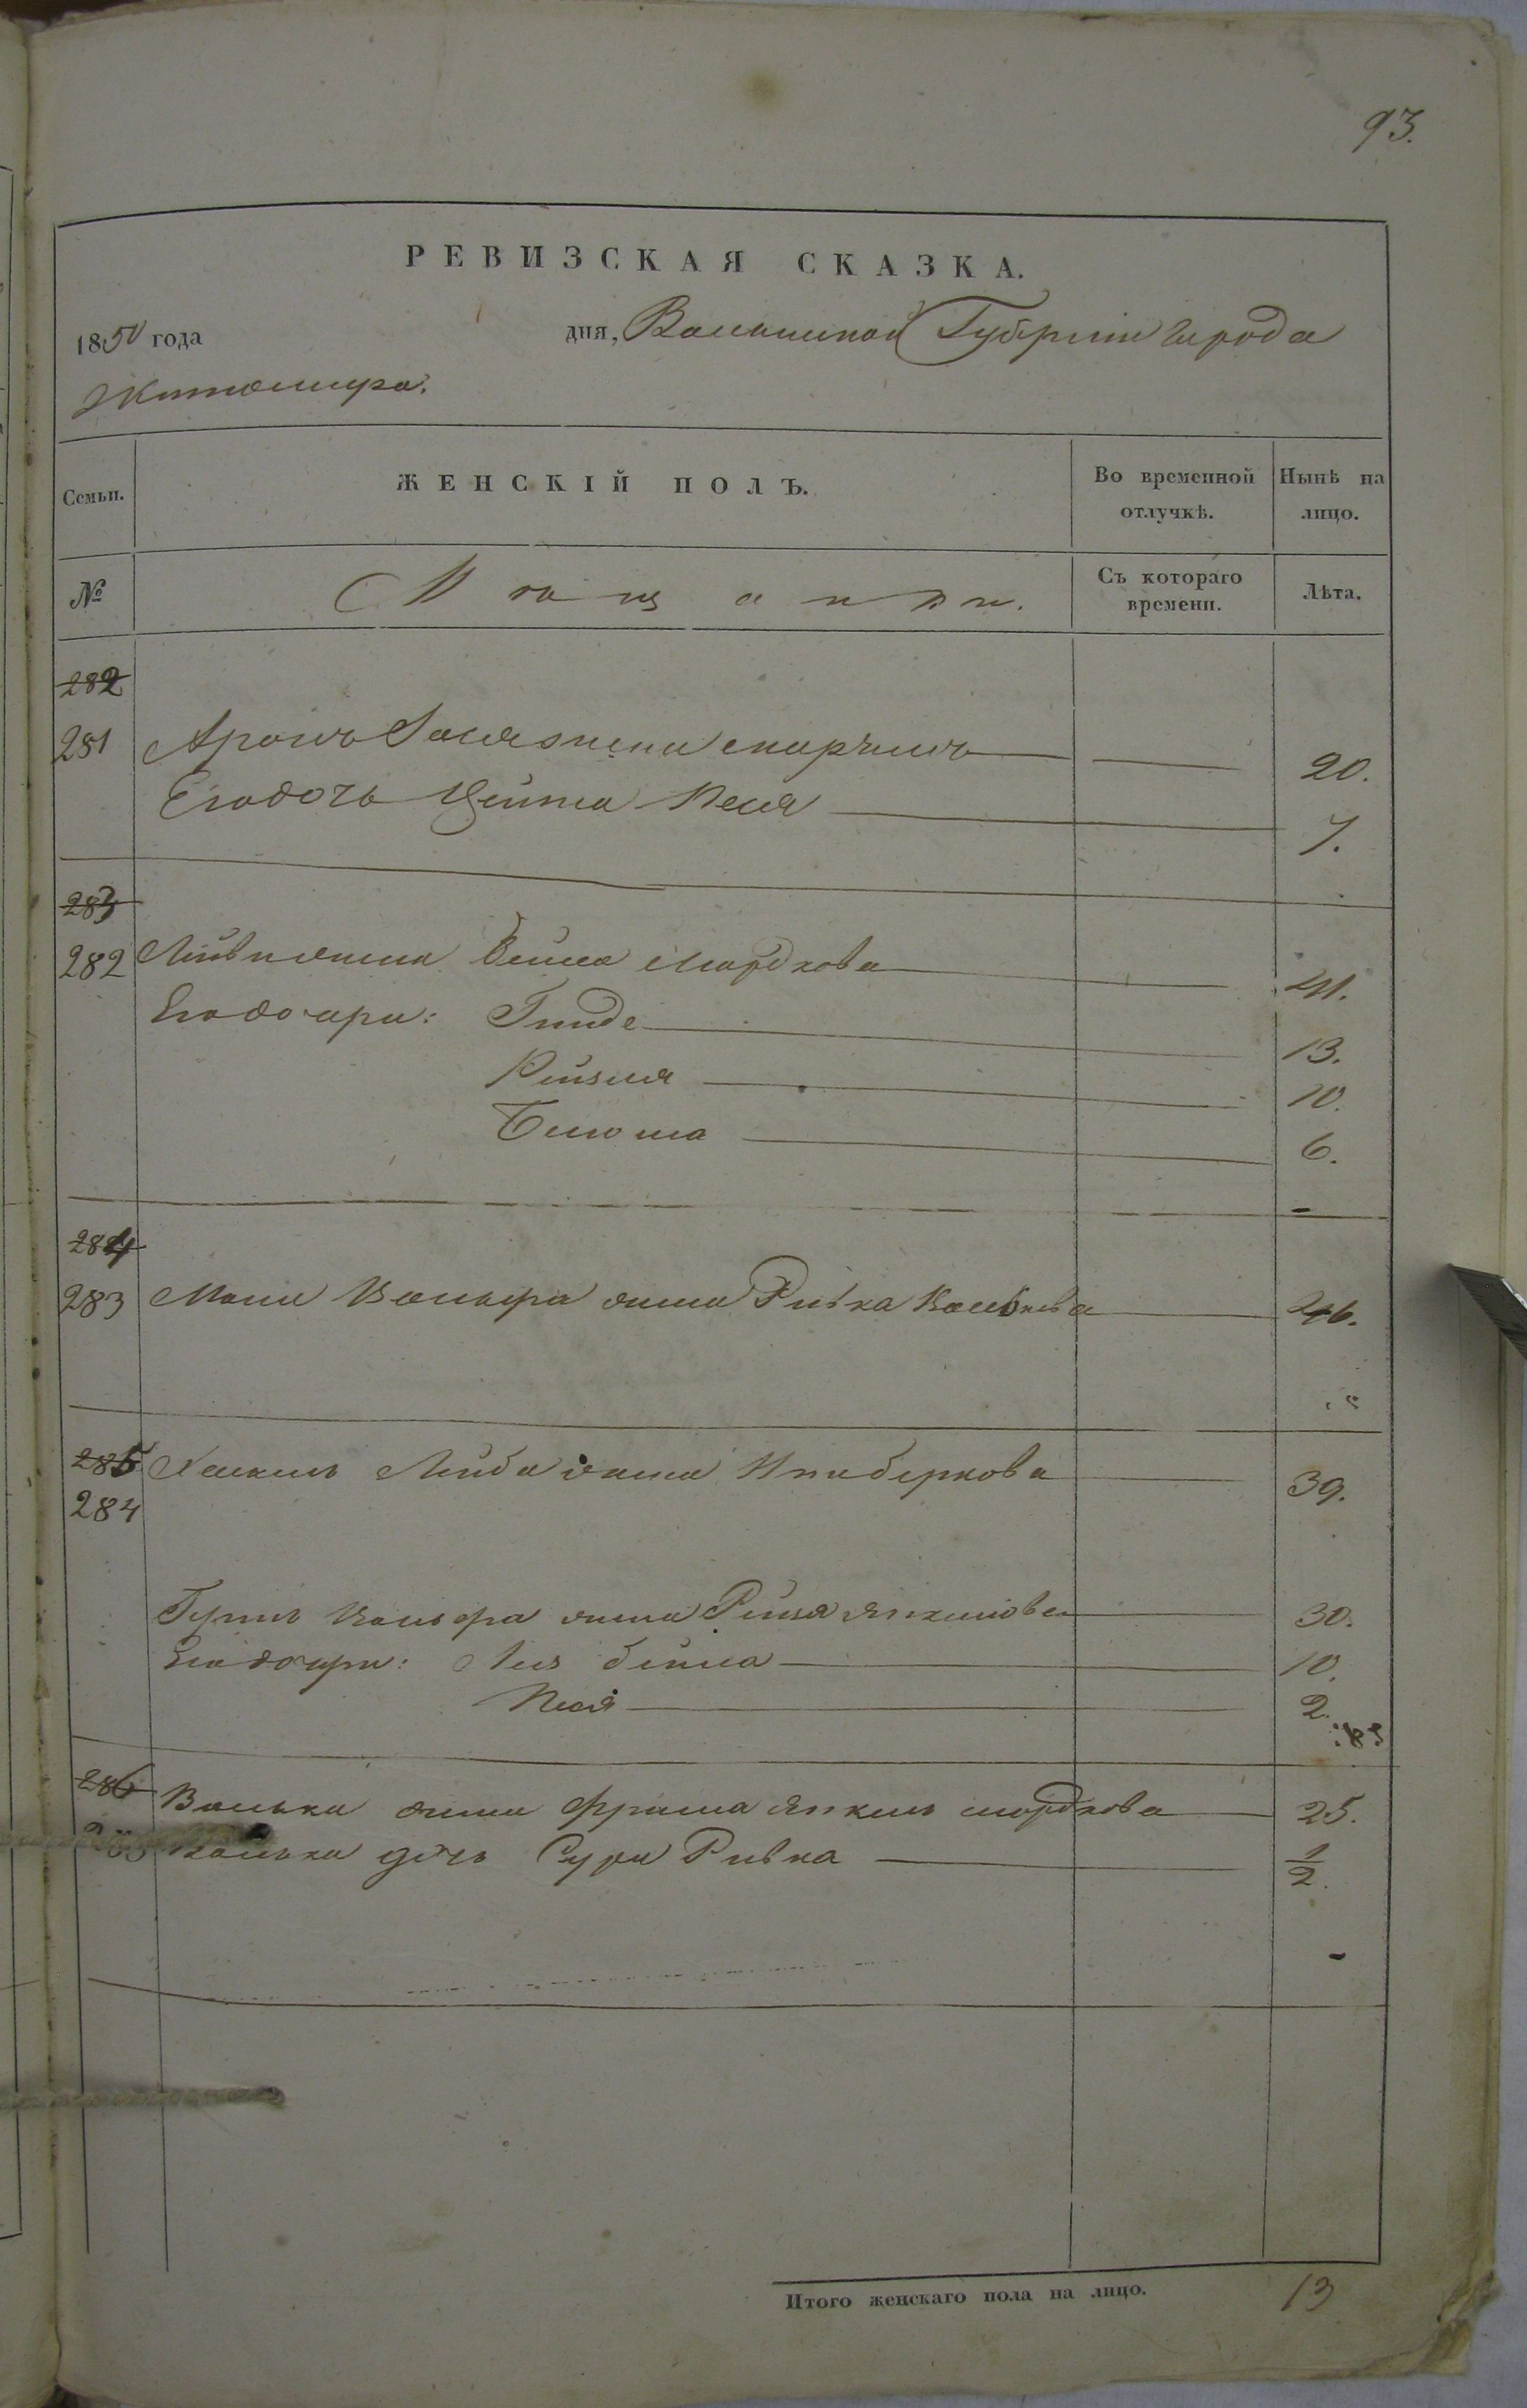 93.
РЕВИЗСКАЯ СКАЗКА.
1850 года дня, Волынской Губерніи города
Житомира.
Семьи. ЖЕНСКІЙ ПОЛЪ. Во временной отлучкѣ. Нынѣ на лицо.
№ Мѣщанки. Съ котораго времени. Лѣта.
282
281 Аронъ жена 20.
Его дочь Цейтля Песя 7.
283
282 жена Бейла Мордкова 41.
Его дочери: Гинде 13.
Рейзля 10.
Блюма 6.
284
283 Вольфа жена Ривка 46.
285 Лейба жена 39.
284
Вольфа жена 30.
Его дочери: Лея бейла 10.
Песя 2.
286 Волька жена Фрима Янкель мордкова 25.
285 Волька дочь Сура Ривка 1/2.
Итого женскаго пола на лицо. 13